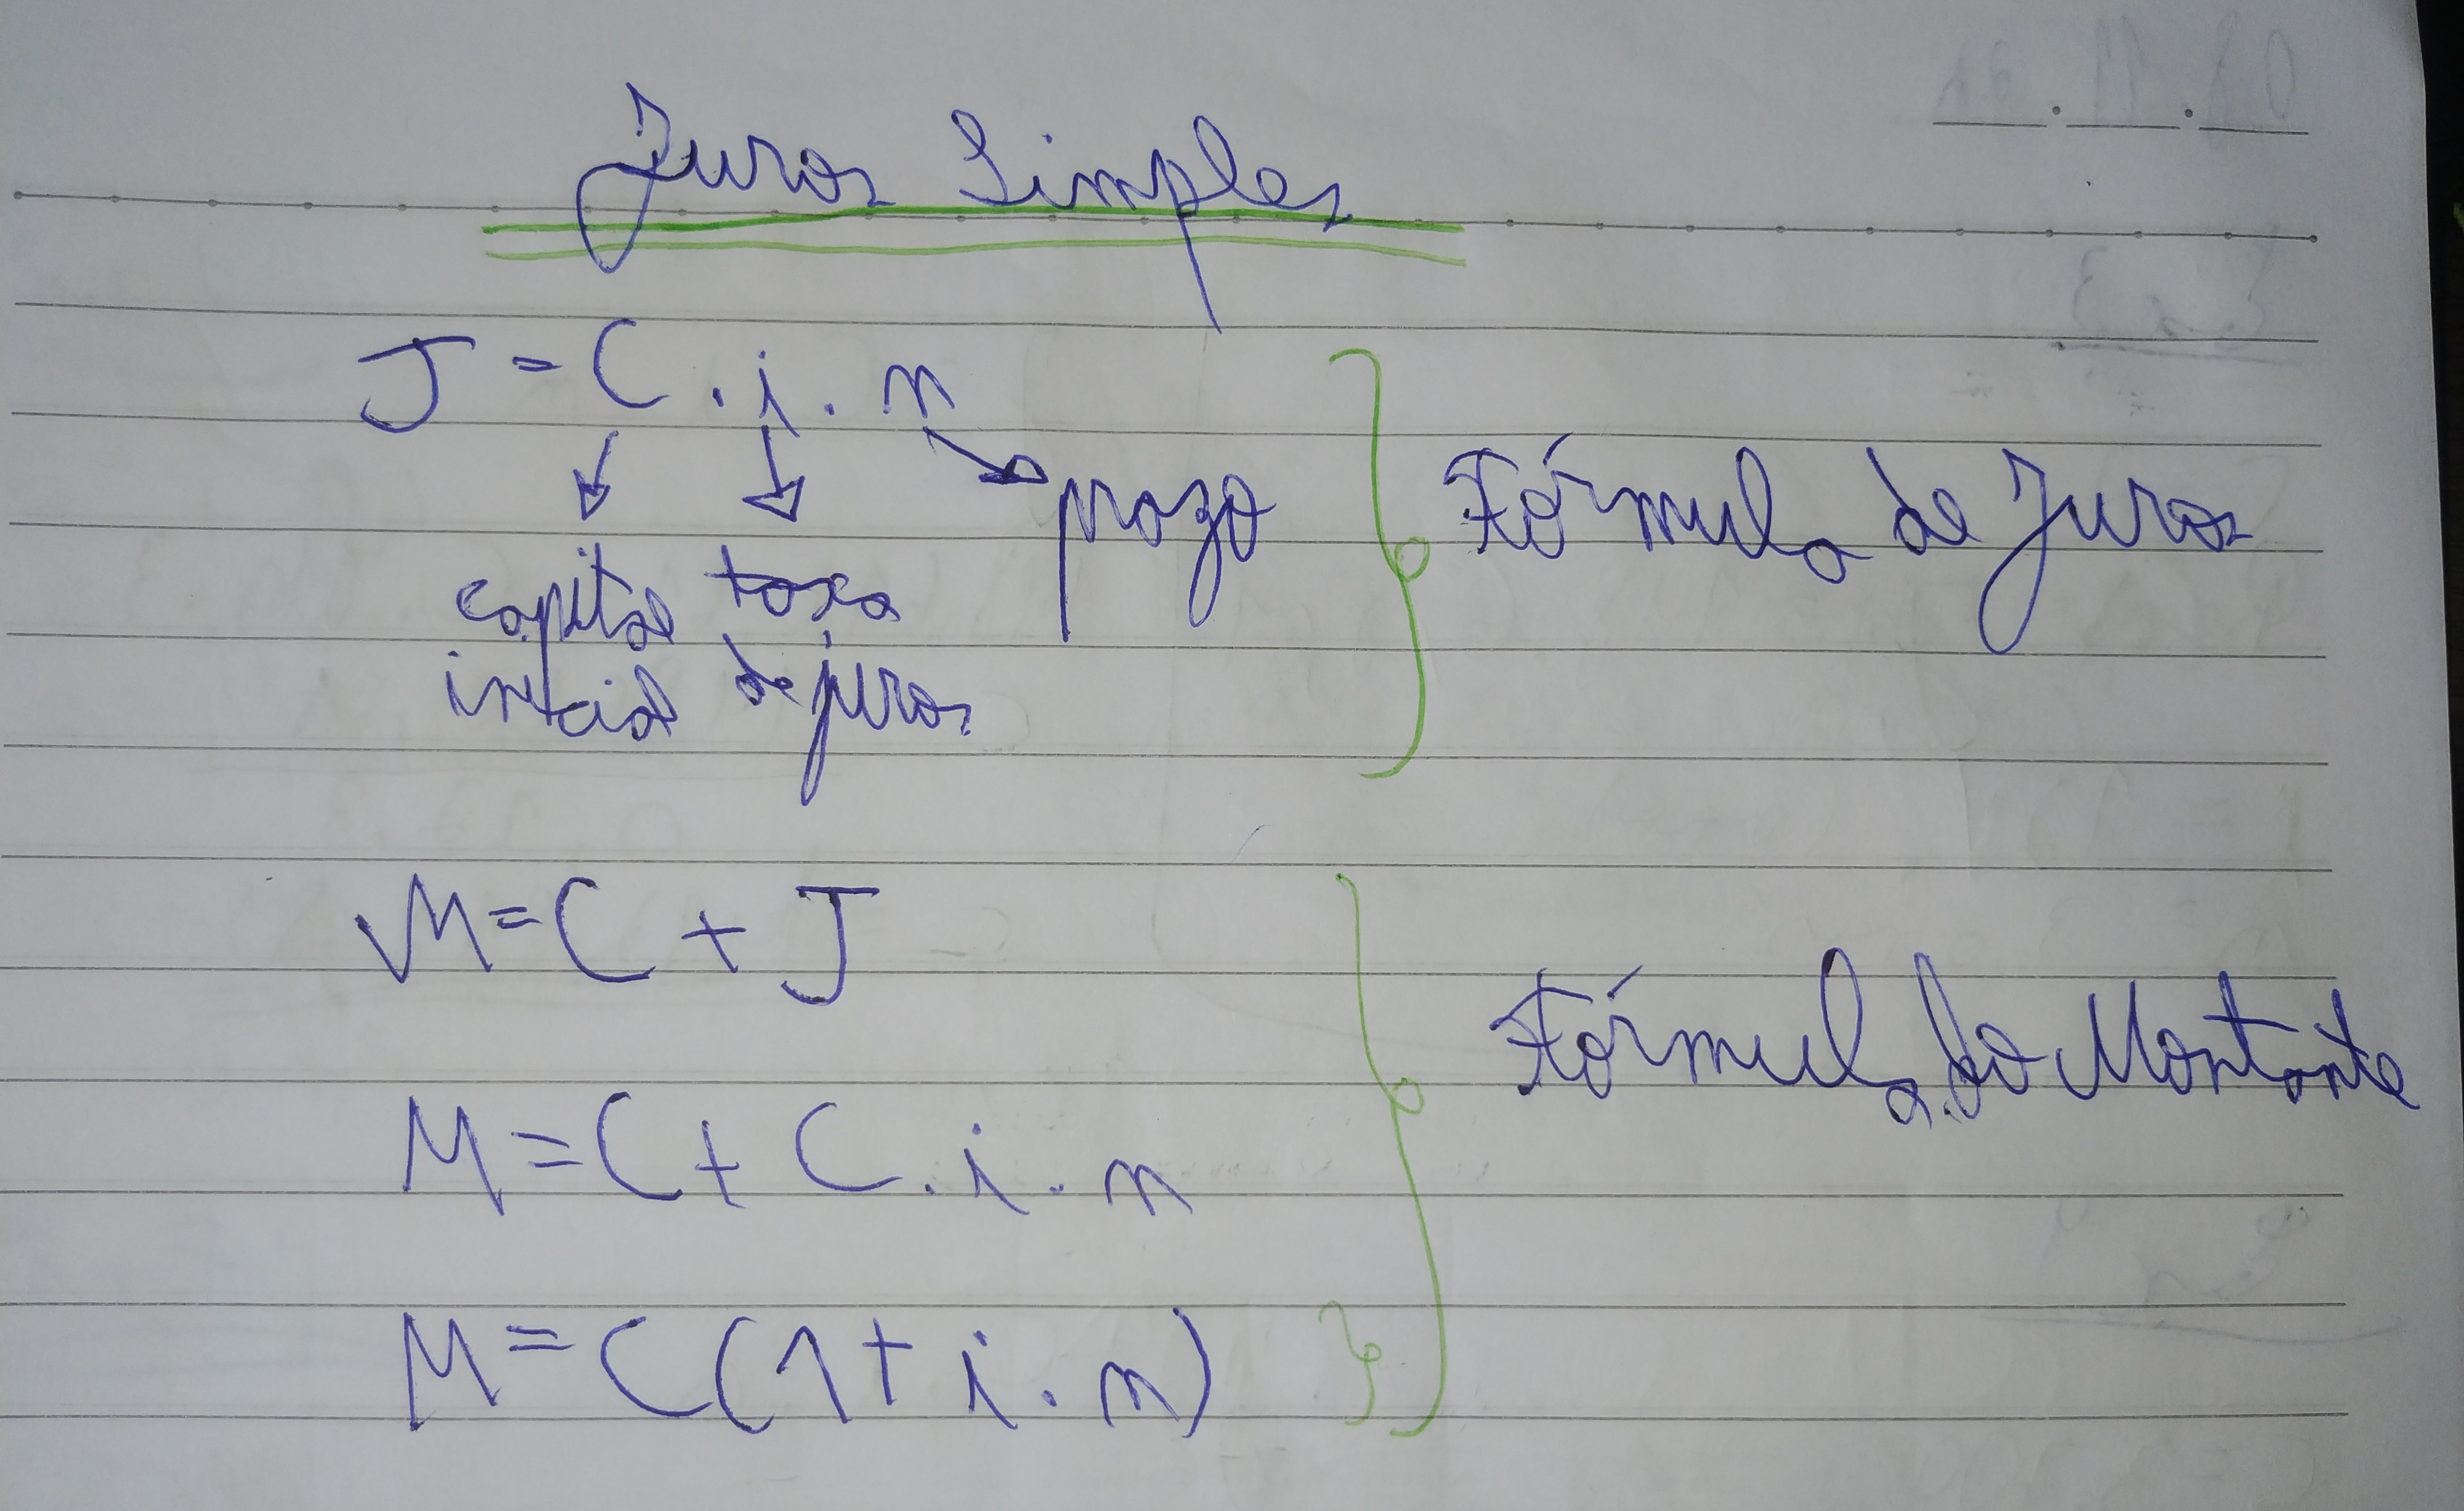 Juros Simples
J = C . i . n
prazo
capital taxa
inicial de juros
Fórmula de Juros
M = C + J
M = C + C . i . n
M = C (1 + i . n)
Fórmula do Montante